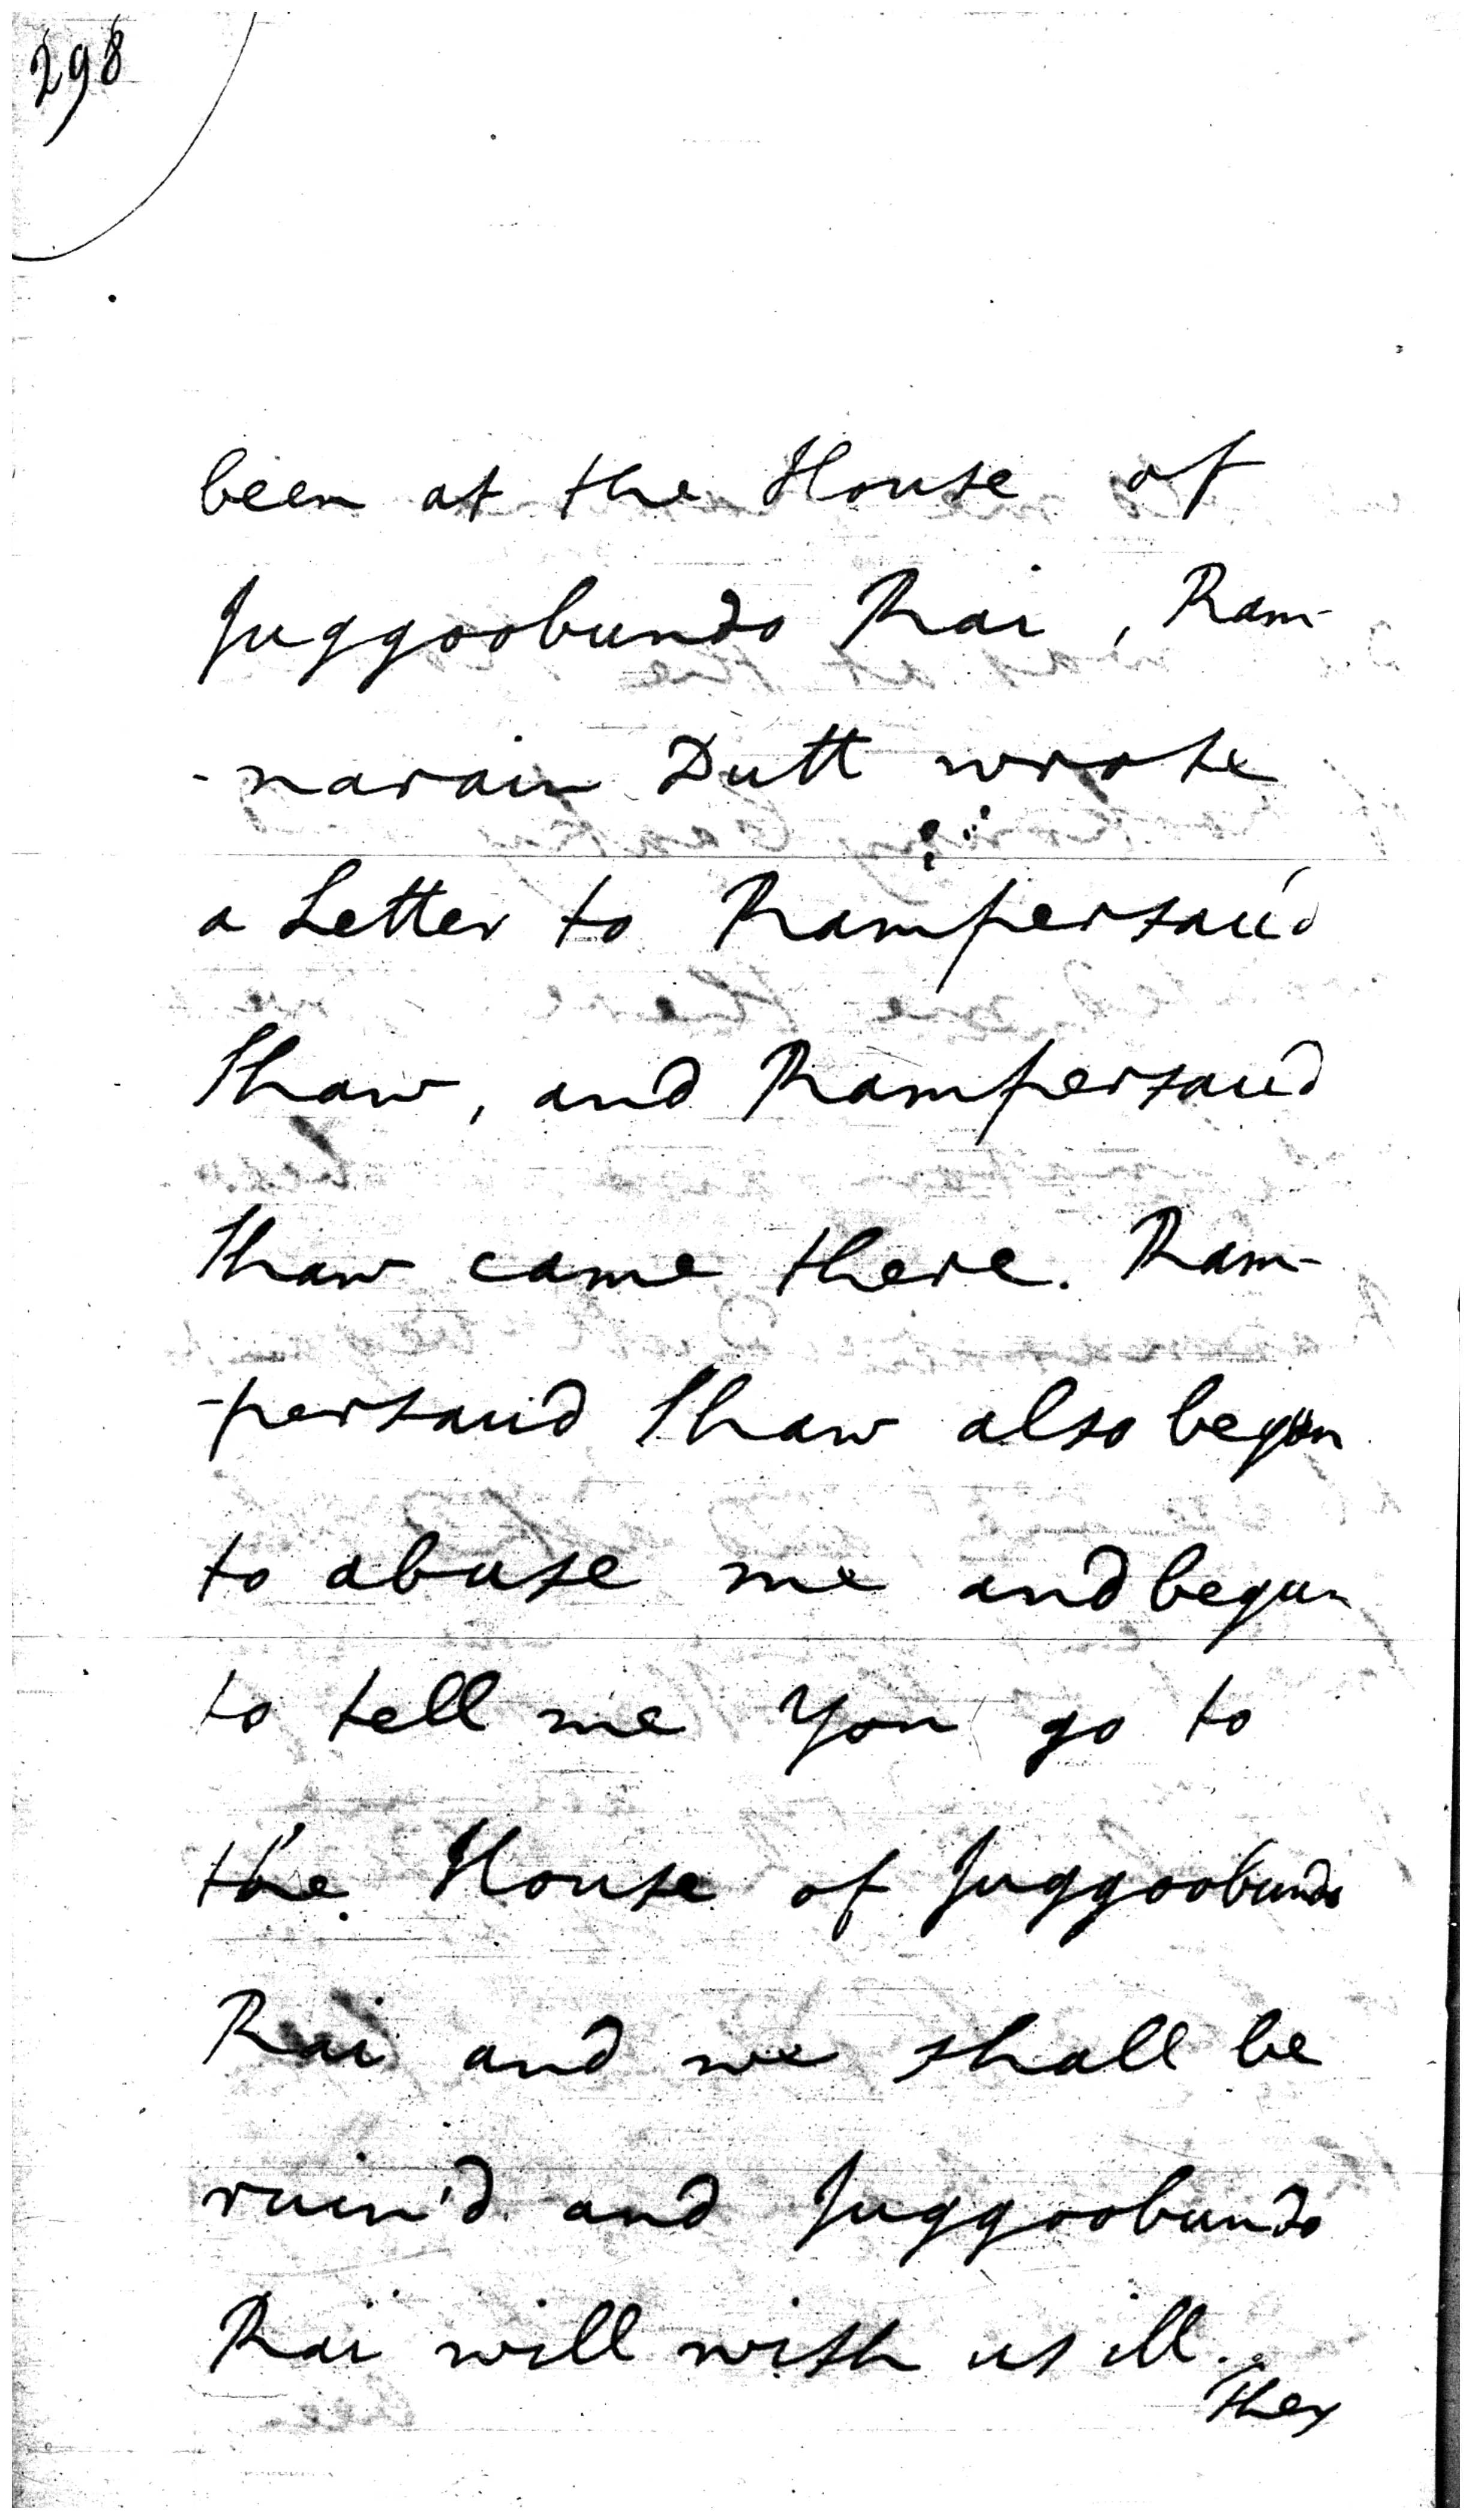 298
been at the House of
Juggoobundo Rai, Ram-
-narain Dutt wrote
a Letter to Rampersaud
Shaw, and Rampersaud
Shaw came there. Ram-
-persaud Shaw also begun
to abuse me and begun
to tell me you go to
the House of Juggoobundo
Rai and we shall be
ruin'd and Juggoobundo
Rai will wish us ill.
they